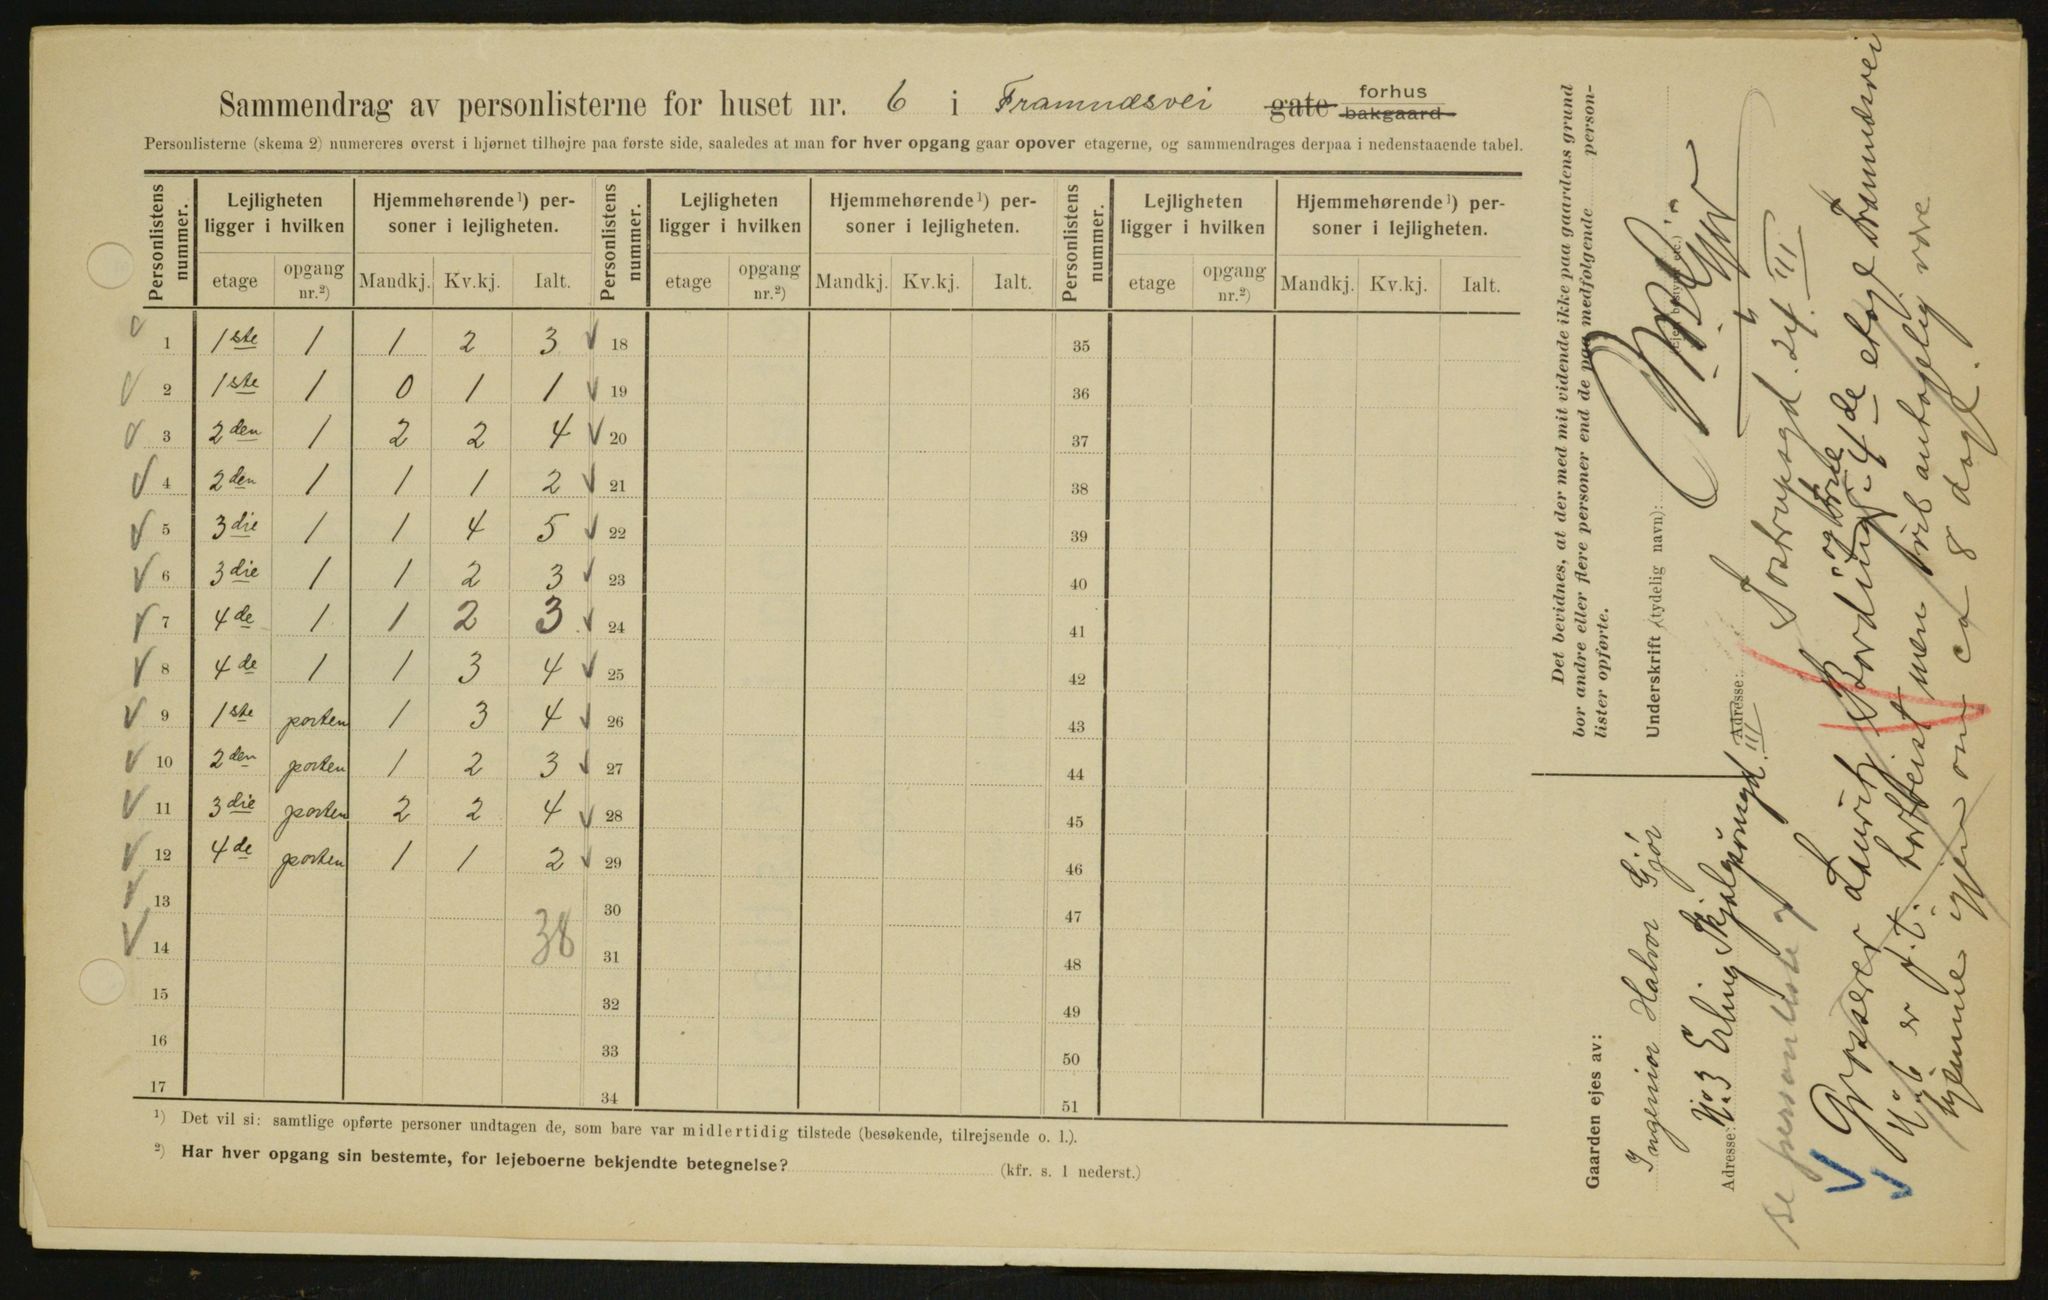 Sammendrag av personlisterne for huset nr. 6 i Framnæsvei gate forhus bakgaard
Personlisterne (skema 2) numereres øverst i hjørnet tilhøjre paa første side, saaledes at man for hver opgang gaar opover etagerne, og sammendrages derpaa i nedenstaaende tabel.
Personlistens nummer. Lejligheten ligger i hvilken Hjemmehørende ¹) personer i lejligheten. Personlistens nummer. Lejligheten ligger i hvilken Hjemmehørende ¹) personer i lejligheten. Personlistens nummer. Lejligheten ligger i hvilken Hjemmehørende ¹) personer i lejligheten.
etage opgang nr.²) Mandkj. Kv.kj. Ialt. etage opgang nr.²) Mandkj. Kv.kj. Ialt. etage opgang nr.²) Mandkj. Kv.kj. Ialt.
1 1ste 1 1 2 3 18 35
2 1ste 1 0 1 1 19 36
3 2den 1 2 2 4 20 37
4 2den 1 1 1 2 21 38
5 3die 1 1 4 5 22 39
6 3die 1 1 2 3 23 40
7 4de 1 1 2 3 24 41
8 4de 1 1 3 4 25 42
9 1ste porten 1 3 4 26 43
10 2den porten 1 2 3 27 44
11 3die porten 2 2 4 28 45
12 4de porten 1 1 2 29 46
13 30 47
14 38 31 48
15 32 49
16 33 50
17 34 51
¹) Det vil si: samtlige opførte personer undtagen de, som bare var midlertidig tilstede (besøkende, tilrejsende o. l.).
²) Har hver opgang sin bestemte, for lejeboerne bekjendte betegnelse? (kfr. s. 1 nederst.)
Det bevidnes, at der med mit vidende ikke paa gaardens grund
bor andre eller flere personer end de paa medfølgende person-
lister opførte.
Underskrift (tydelig navn):
Adresse: Tostrupsgd. 24 III
Gaarden ejes av:
Ingeniør Halvor Gjør
Adresse: No 3 Erling Skjalgsonsgt. III
se personliste 7
Grosserer Lauritz Bording og frue 4de etage Framnæsvei
No 6 er p.t. bortreist men vil antagelig være
hjemme igjen om ca 8 dage.